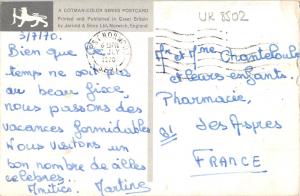 A COTMAN-COLOR SERIES POSTCARD
Printed and Published in Great Britain
by Jarrold & Sons Ltd. Norwich, England
UK 8502
3/7/70.
Bien que le
temps ne soit pas
au beau fixe,
nous passons des
vacances formidables
Nous visitons un
bon nombre de villes
célèbres.
Amitiés. Martine
Mr et Mme Chanteloube
et leurs enfants.
Pharmacie,
Les Aspres
61
FRANCE